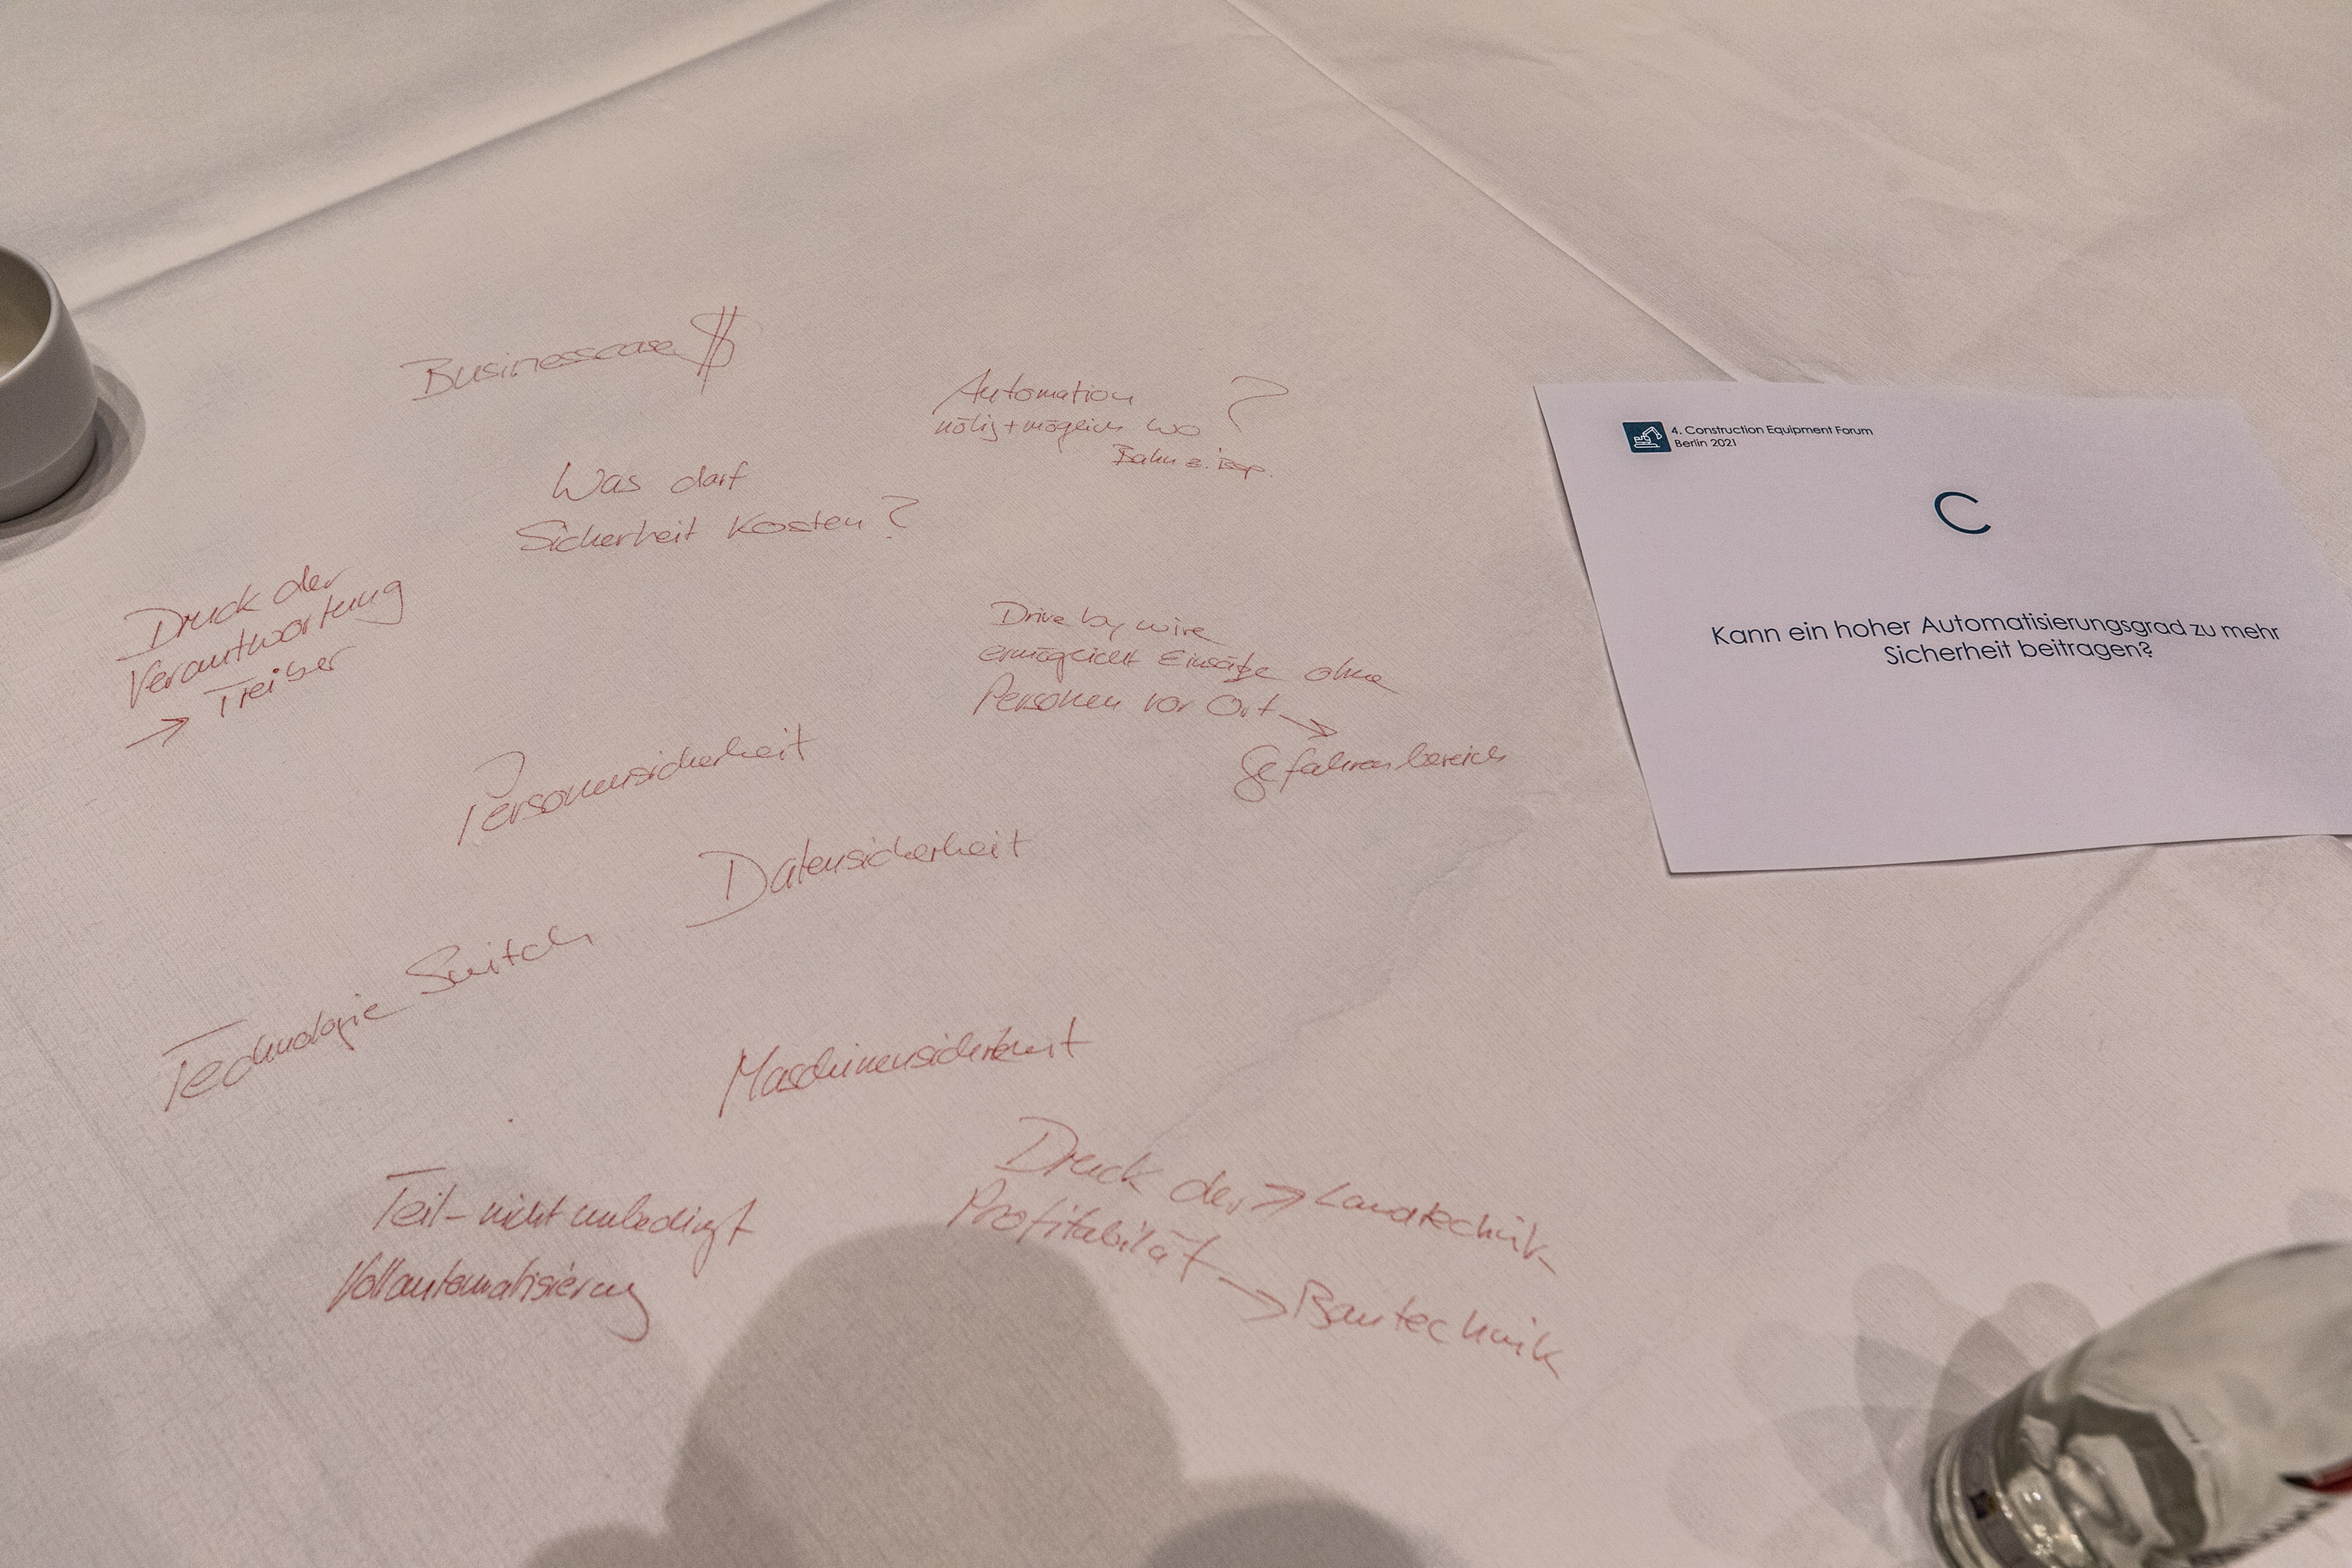 Businesscase $
Automation ?
nötig + möglich wo
Bahn z. Bsp.
Was darf
Sicherheit kosten?
Druck der
Verantwortung
→ Treiber
Drive by wire
ermöglicht Einsätze ohne
Personen vor Ort →
Gefahrenbereich
Personensicherheit
Datensicherheit
Technologie Switch
Maschinensicherheit
Teil- nicht unbedingt
Vollautomatisierung
Druck der → Landtechnik
Profitabilität → Bautechnik
4. Construction Equipment Forum
Berlin 2021
C
Kann ein hoher Automatisierungsgrad zu mehr
Sicherheit beitragen?